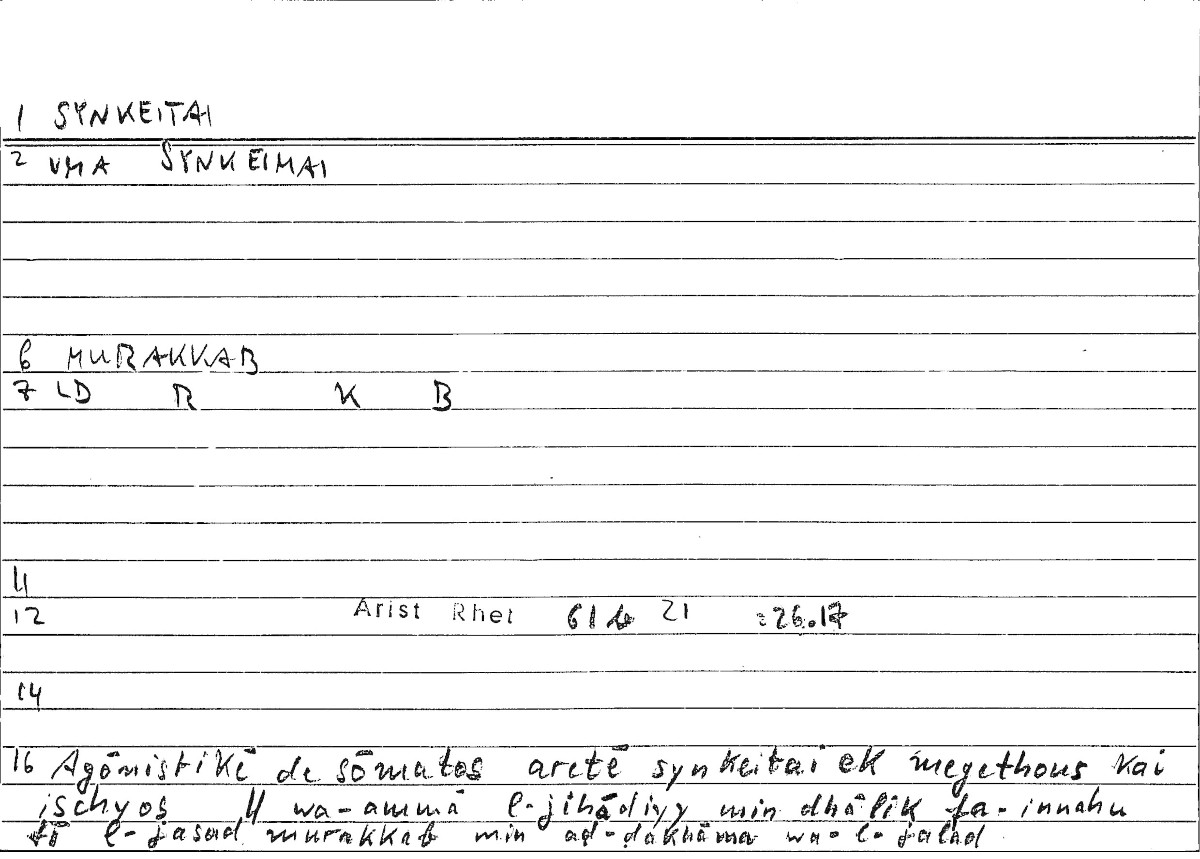 1 SYNKEITAI
2 VMA SYNKEIMAI
6 MURAKKAB
7 LD R K B
11
12 Arist Rhet 61b 21 :26.17
14
16 Agōnistikē de sōmatos aretē synkeitai ek megethous kai
ischyos // wa-ammā l-jihādiyy min dhālik fa-innahu
fī l-jasad murakkab min aḍ-ḍakhāma wa-l-jalad